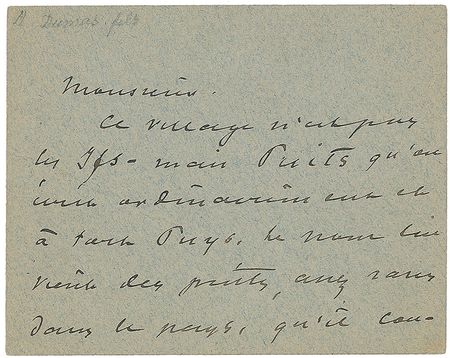 A Dumas fils
Monsieur.
Ce village n'est pas
les Ifs - mais Puits qu'on
écrit ordinairement et
à tort Puys. Le nom lui
vient des puits, assez rares
dans le pays, qu'il con-